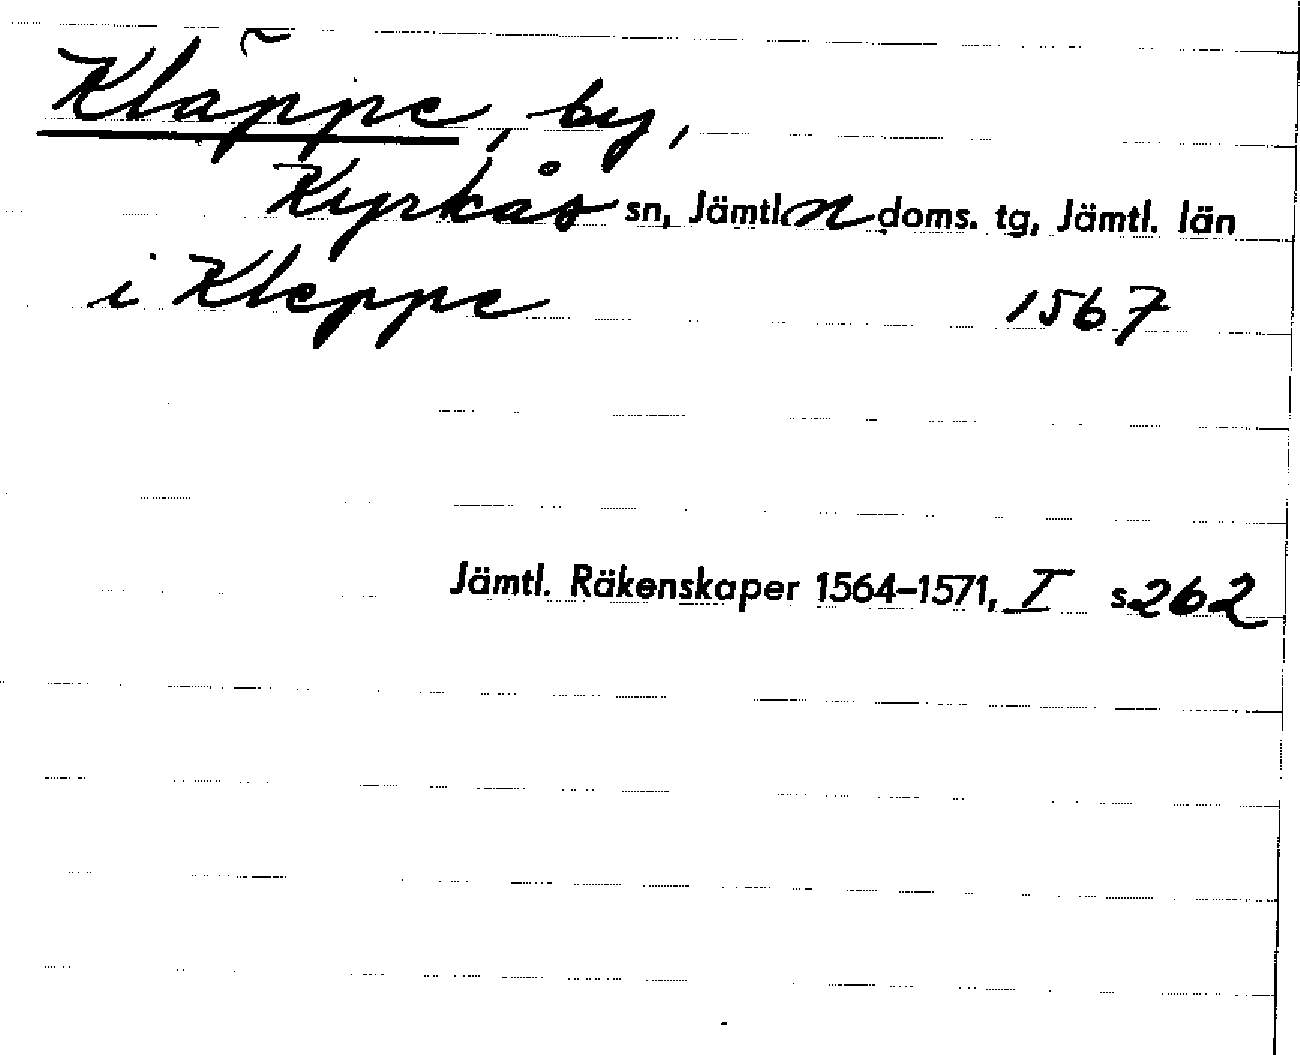 Kläppe, by,
Kyrkås sn, Jämtl n doms. tg, Jämtl. län
i Kleppe 1567
Jämtl. Räkenskaper 1564–1571, I s 262